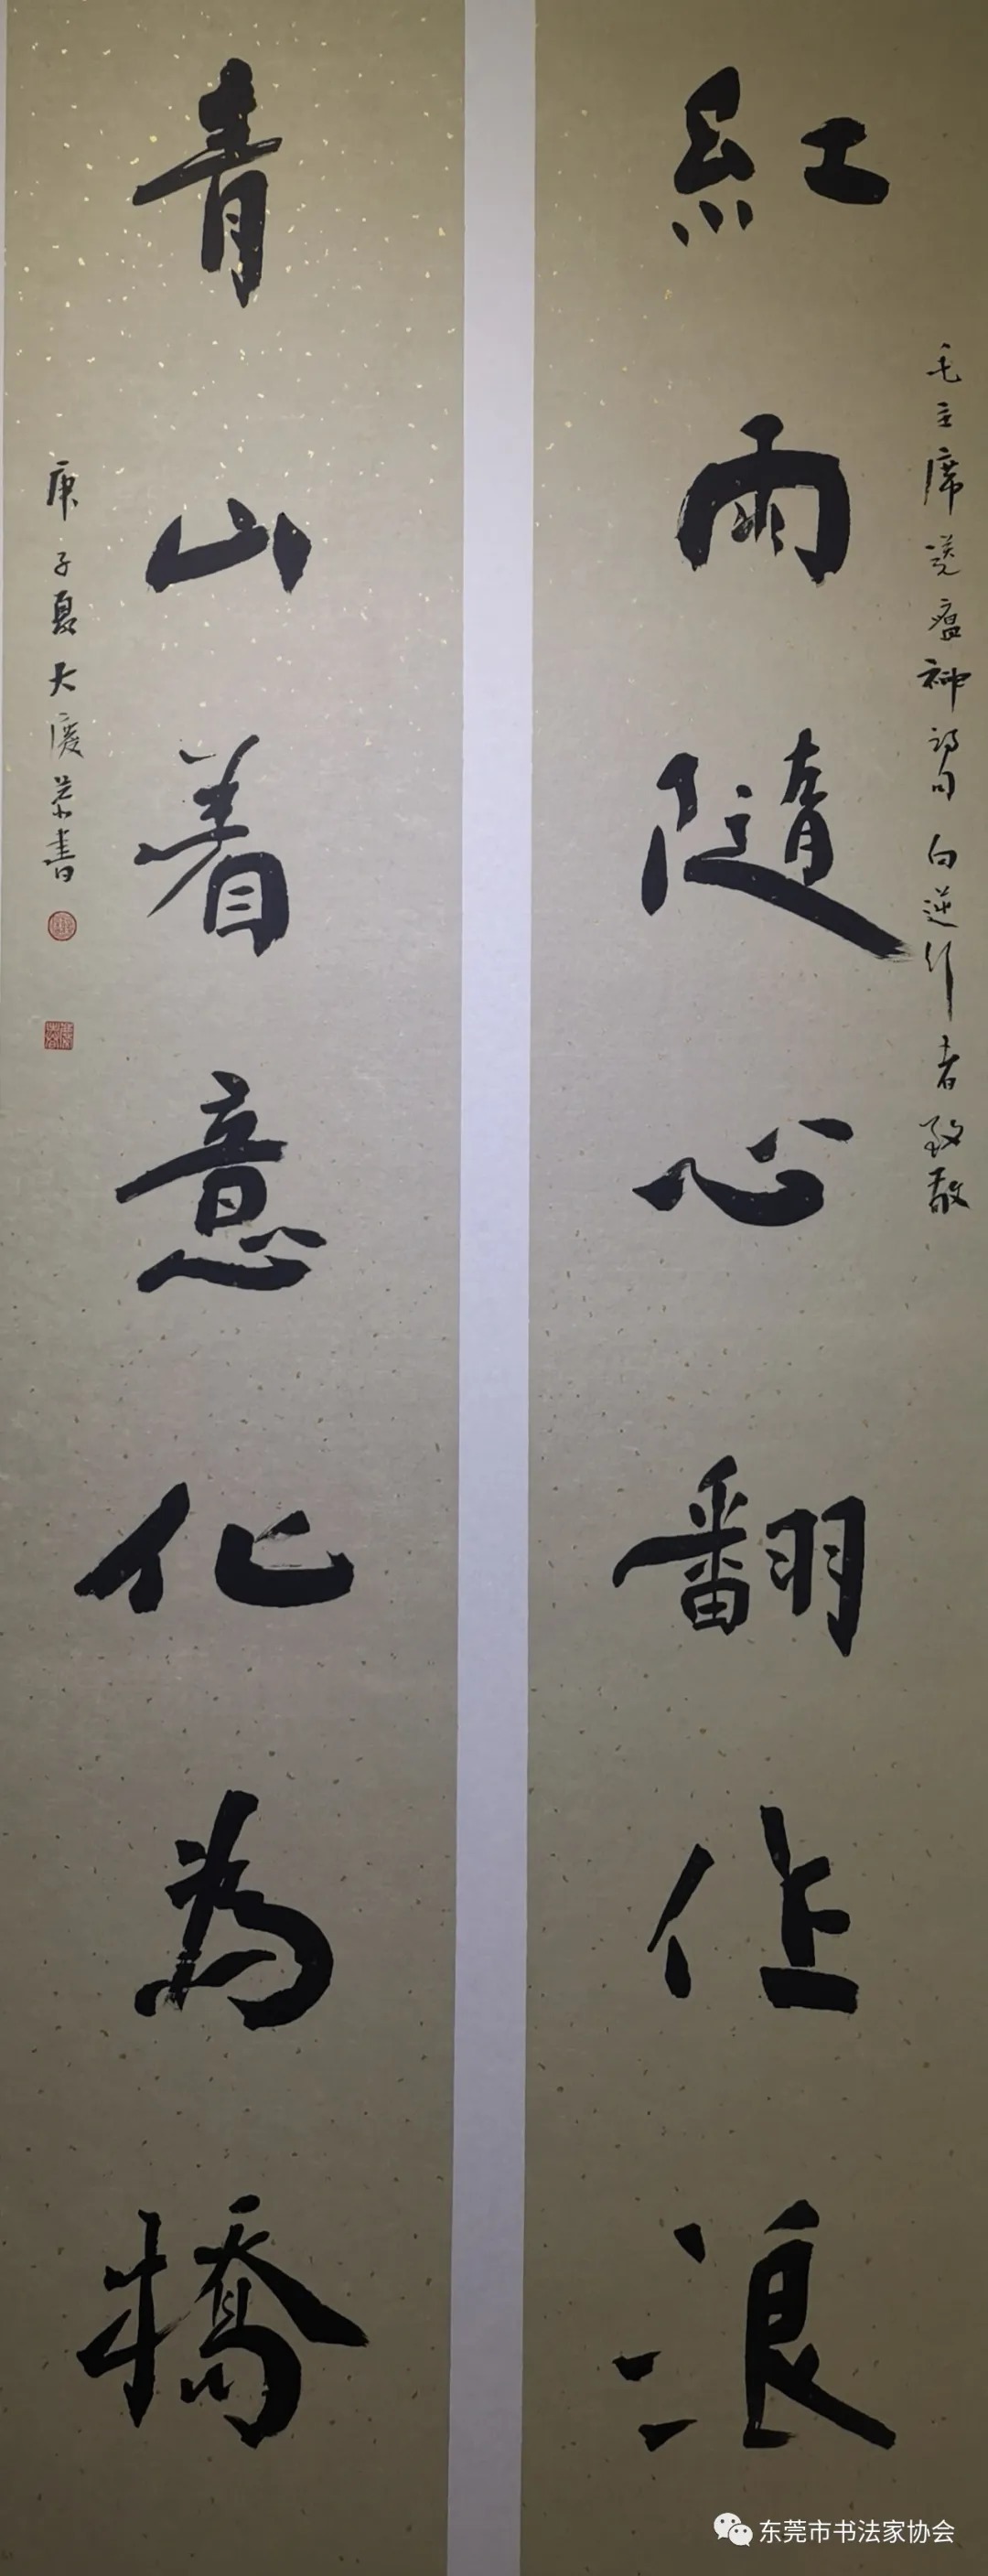 毛主席送瘟神詩句 向逆行者致敬
紅雨隨心翻作浪
青山着意化為橋
庚子夏大慶恭書
东莞市书法家协会